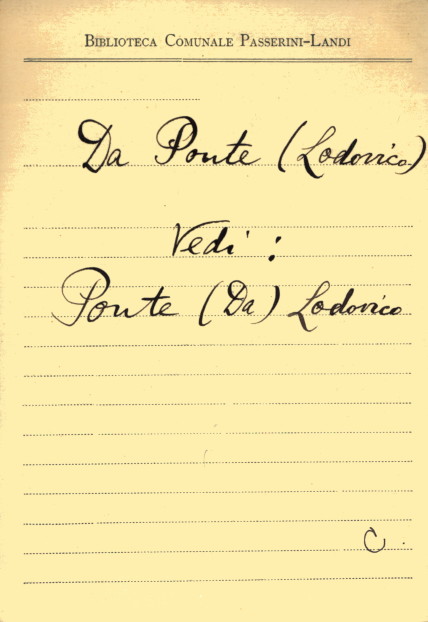 BIBLIOTECA COMUNALE PASSERINI-LANDI
Da Ponte (Lodovico)
Vedi :
Ponte (Da) Lodovico
C.